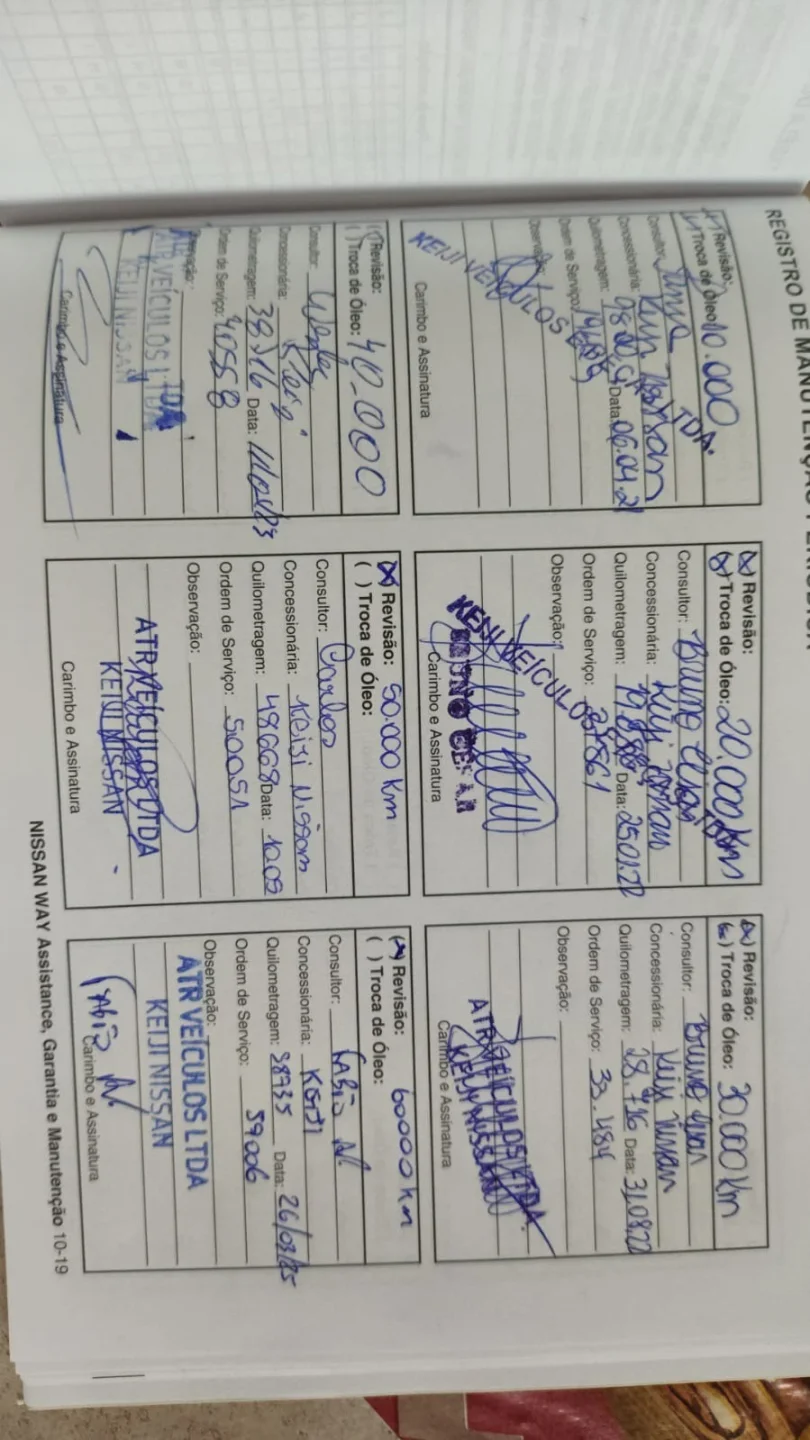 REGISTRO DE MANUTENÇÃO
Revisão: 10.000
Troca de Óleo:
Consultor:
Concessionária: Keiji Nissan
Quilometragem: Data: 06.04.21
Ordem de Serviço:
Observação:
KEIJI VEÍCULOS LTDA.
Carimbo e Assinatura
(x) Revisão: 20.000 Km
(x) Troca de Óleo:
Consultor: Bruno
Concessionária: Keiji Nissan
Quilometragem: Data: 25.01.22
Ordem de Serviço:
Observação:
KEIJI VEÍCULOS LTDA
BRUNO CESAR
Carimbo e Assinatura
(x) Revisão: 30.000 Km
(x) Troca de Óleo:
Consultor: Bruno
Concessionária: Keiji Nissan
Quilometragem: 28.716 Data: 31.08.22
Ordem de Serviço: 33.484
Observação:
ATR VEÍCULOS LTDA
KEIJI NISSAN
Carimbo e Assinatura
( ) Revisão: 40.000
( ) Troca de Óleo:
Consultor:
Concessionária: Keiji
Quilometragem: 38716 Data:
Ordem de Serviço: 40558
Observação:
ATR VEÍCULOS LTDA
KEIJI NISSAN
Carimbo e Assinatura
(x) Revisão: 50.000 Km
( ) Troca de Óleo:
Consultor: Carlos
Concessionária: Keiji Nissan
Quilometragem: 48668 Data: 10.02
Ordem de Serviço: 50051
Observação:
ATR VEÍCULOS LTDA
KEIJI NISSAN
Carimbo e Assinatura
(x) Revisão: 60000 km
( ) Troca de Óleo:
Consultor: Fabio N.
Concessionária: Keiji
Quilometragem: 58735 Data: 26/03/25
Ordem de Serviço: 59006
Observação:
ATR VEÍCULOS LTDA
KEIJI NISSAN
Fabio N.
Carimbo e Assinatura
NISSAN WAY Assistance, Garantia e Manutenção 10-19